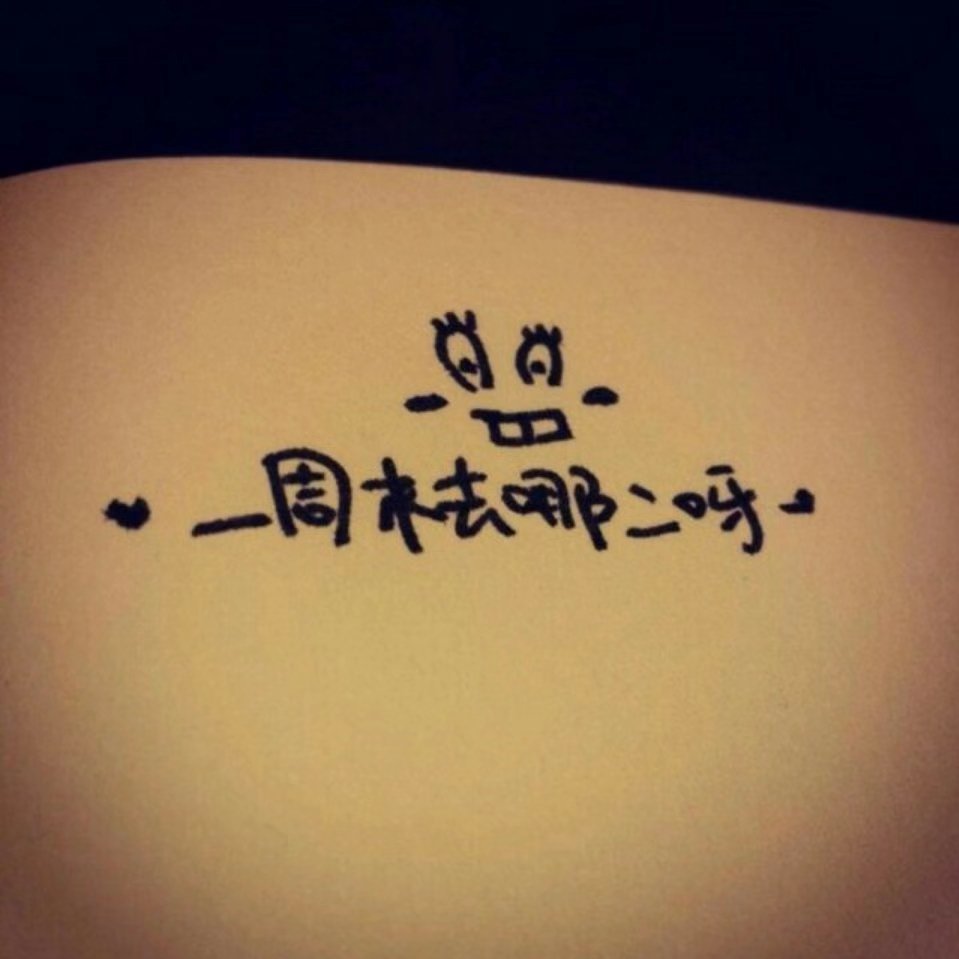 一周末去哪二呀